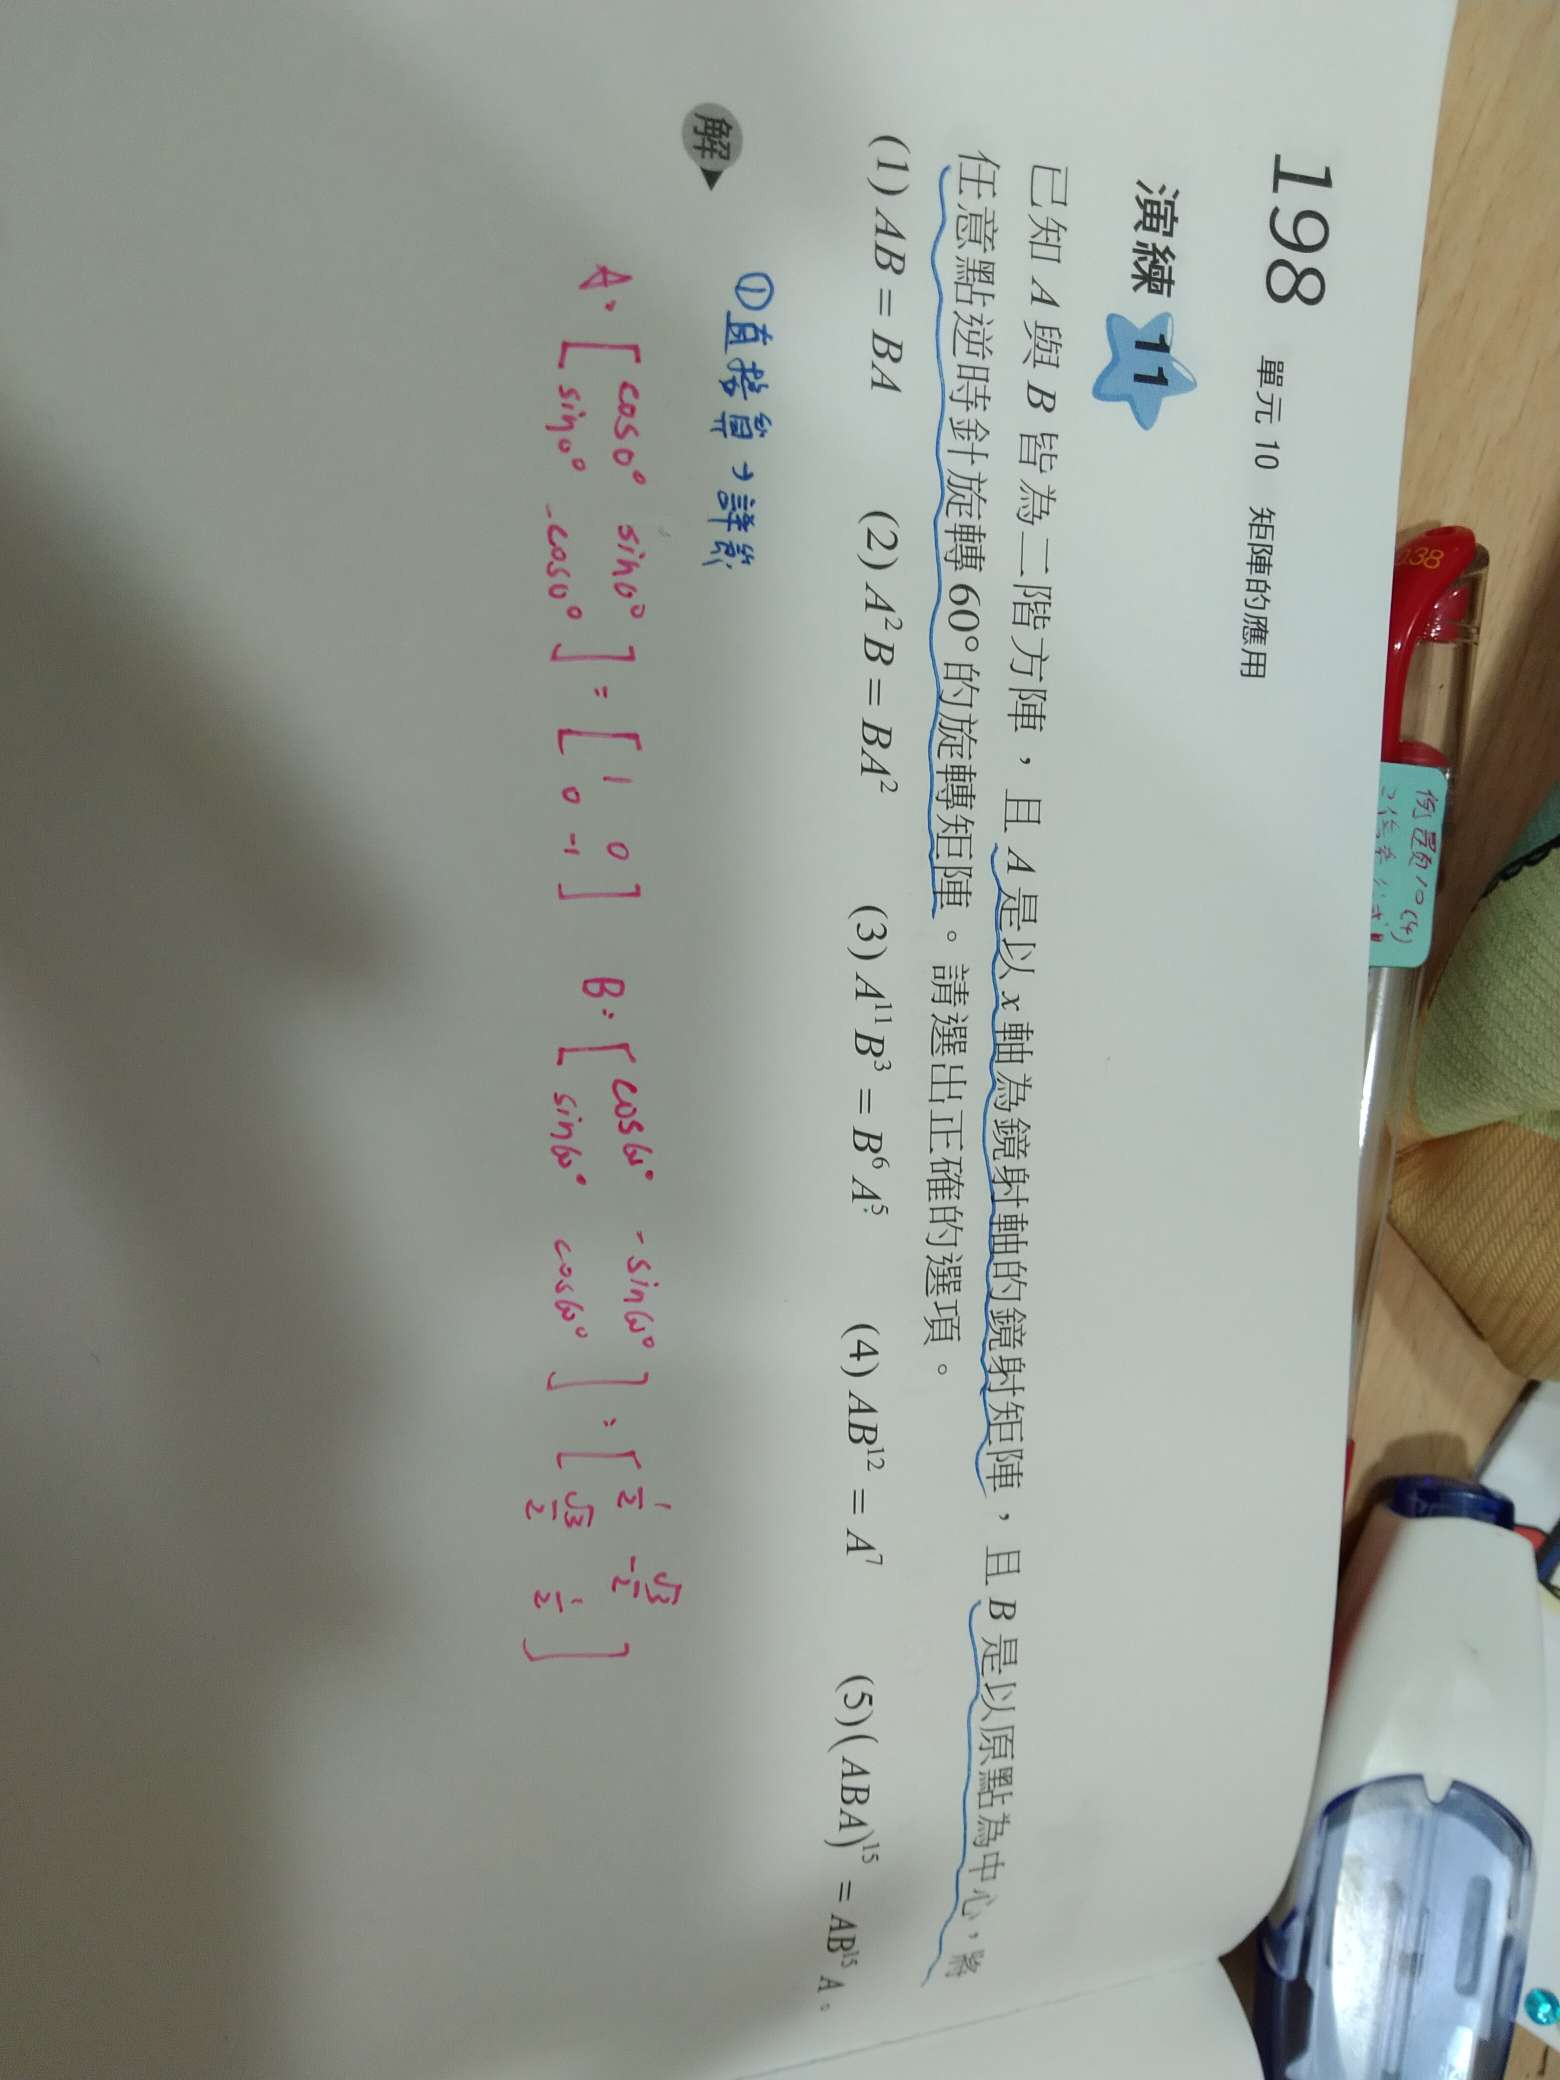 198 單元 10 矩陣的應用
演練 11
已知 A 與 B 皆為二階方陣，且 A 是以 x 軸為鏡射軸的鏡射矩陣，且 B 是以原點為中心，將
任意點逆時針旋轉 60° 的旋轉矩陣。請選出正確的選項。
(1) AB = BA (2) A²B = BA² (3) A¹¹B³ = B⁶A⁵ (4) AB¹² = A⁷ (5) (ABA)¹⁵ = AB¹⁵A。
解
①直接算→詳銳
A = [ cos0° sin0° ] = [ 1 0 ] B = [ cos60° -sin60° ] = [ 1/2 -√3/2 ]
[ sin0° -cos0° ] [ 0 -1 ] [ sin60° cos60° ] [ √3/2 1/2 ]
0.38
例題10(4)